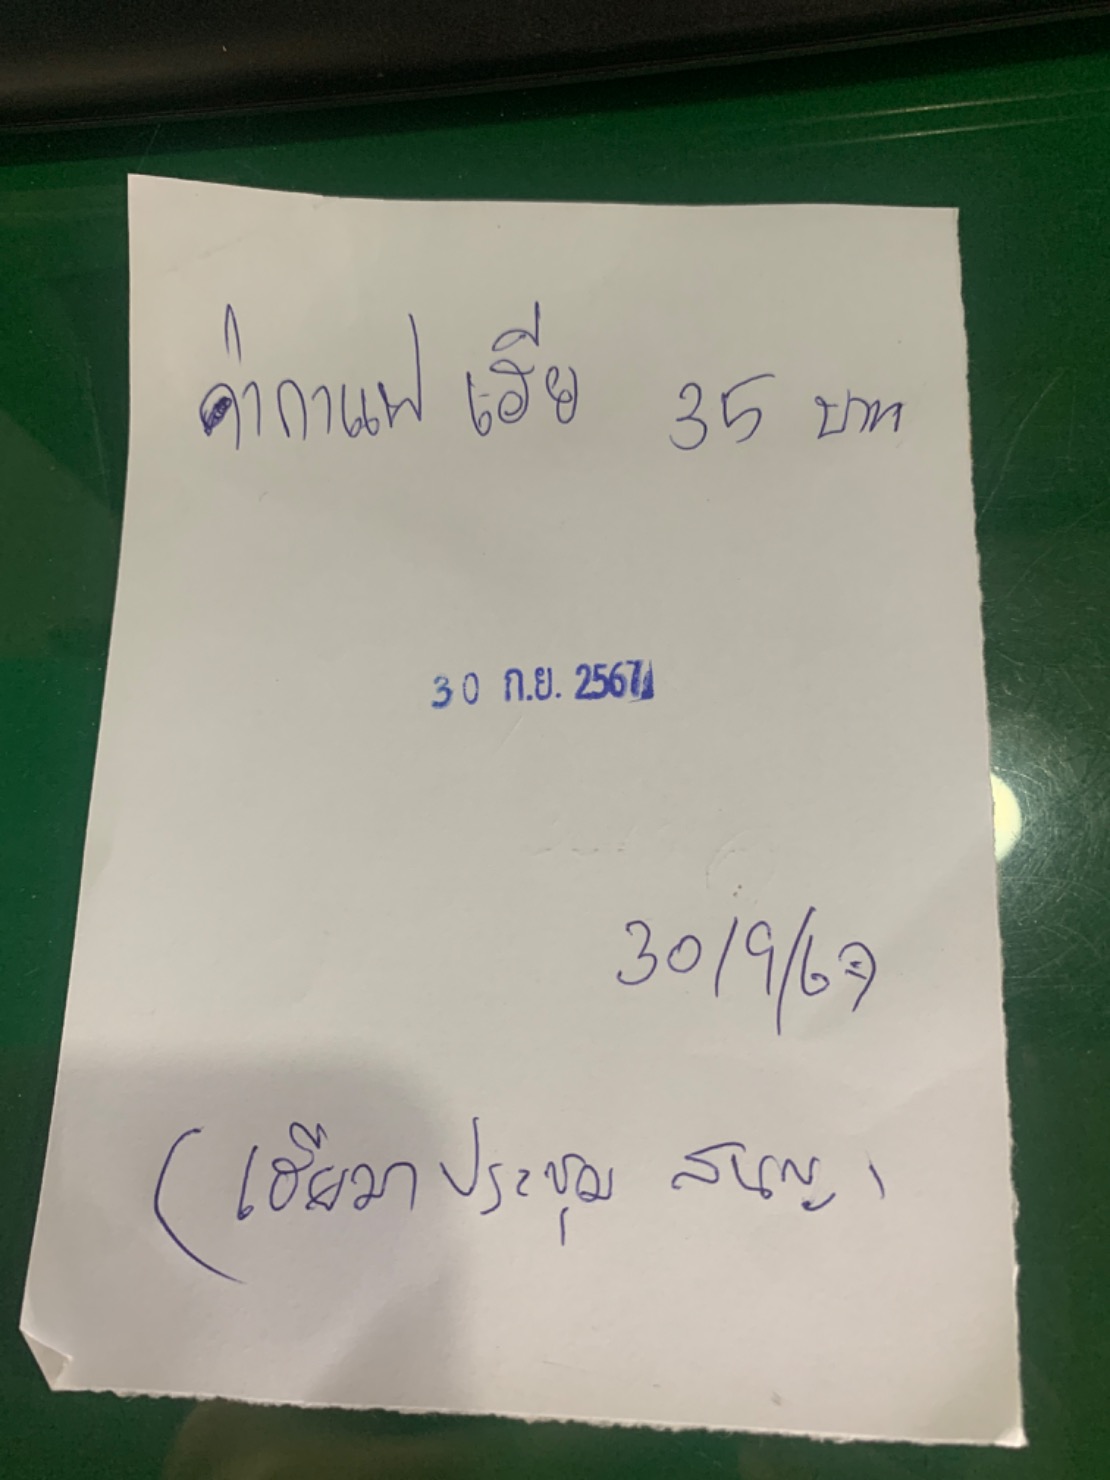 ค่ากาแฟ เฮีย 35 บาท
30 ก.ย. 2567
30/9/67
(เฮียมา ประชุม